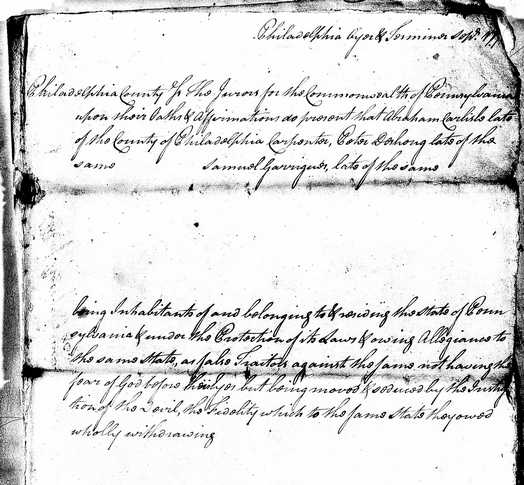 Philadelphia Oyer & Terminer Sepr.
Philadelphia County Ss The Jurors for the Commonwealth of Pennsylvania
upon their Oaths & Affirmations do present that Abraham Carlisle late
of the County of Philadelphia Carpenter, Peter Deshong late of the
same Samuel Garrigues, late of the same
being Inhabitants of and belonging to & residing the State of Penn
sylvania & under the Protection of its Laws & owing Allegiance to
the same State, as false Traitors against the same not having the
fear of God before their eyes but being moved & seduced by the Instiga
tion of the Devil, the Fidelity which to the same State they owed
wholly withdrawing